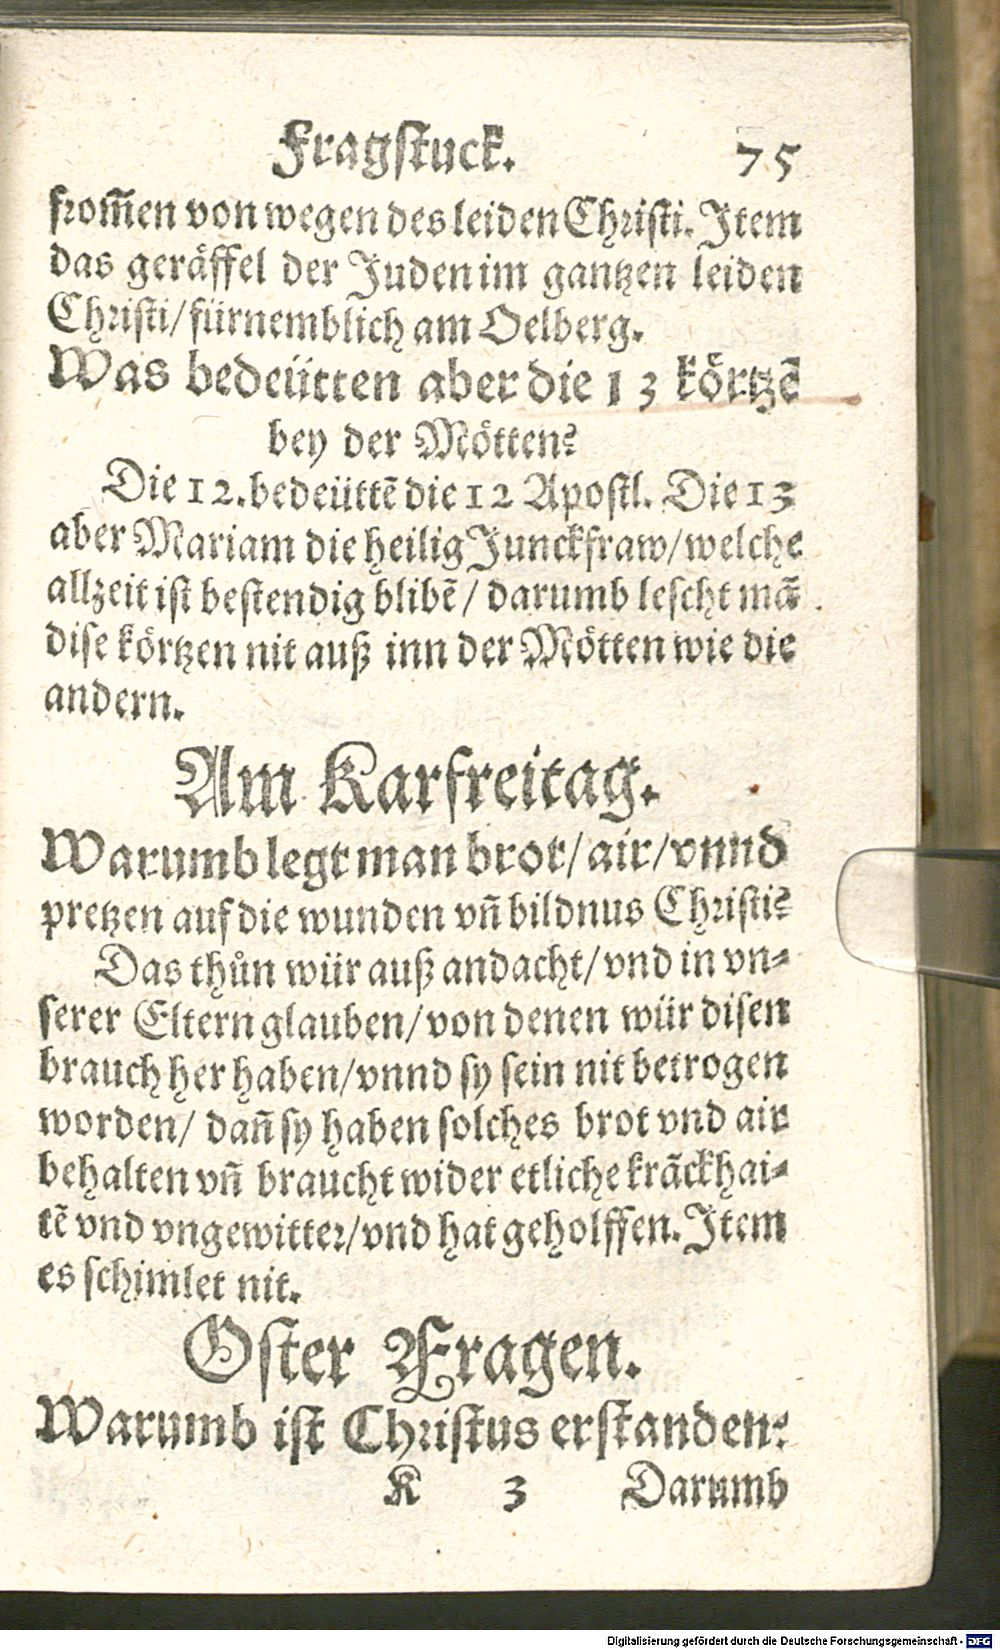 Fragstuck. 75
from̃en von wegen des leiden Christi. Item
das geräffel der Juden im gantzen leiden
Christi/ fürnemblich am Oelberg.
Was bedeütten aber die 13 körtzẽ
bey der Mötten?
Die 12. bedeüttẽ die 12 Apostl. Die 13
aber Mariam die heilig Junckfraw/ welche
allzeit ist bestendig blibẽ/ darumb lescht mã
dise körtzen nit auß inn der Mötten wie die
andern.
Am Karfreitag.
Warumb legt man brot/ air/ vnnd
pretzen auf die wunden vñ bildnus Christi?
Das thůn wür auß andacht/ vnd in vn-
serer Eltern glauben/ von denen wür disen
brauch her haben/ vnnd sy sein nit betrogen
worden/ dañ sy haben solches brot vnd air
behalten vñ braucht wider etliche krãckhai-
tẽ vnd vngewitter/ vnd hat geholffen. Item
es schimlet nit.
Oster Fragen.
Warumb ist Christus erstanden?
K 3 Darumb
Digitalisierung gefördert durch die Deutsche Forschungsgemeinschaft - DFG